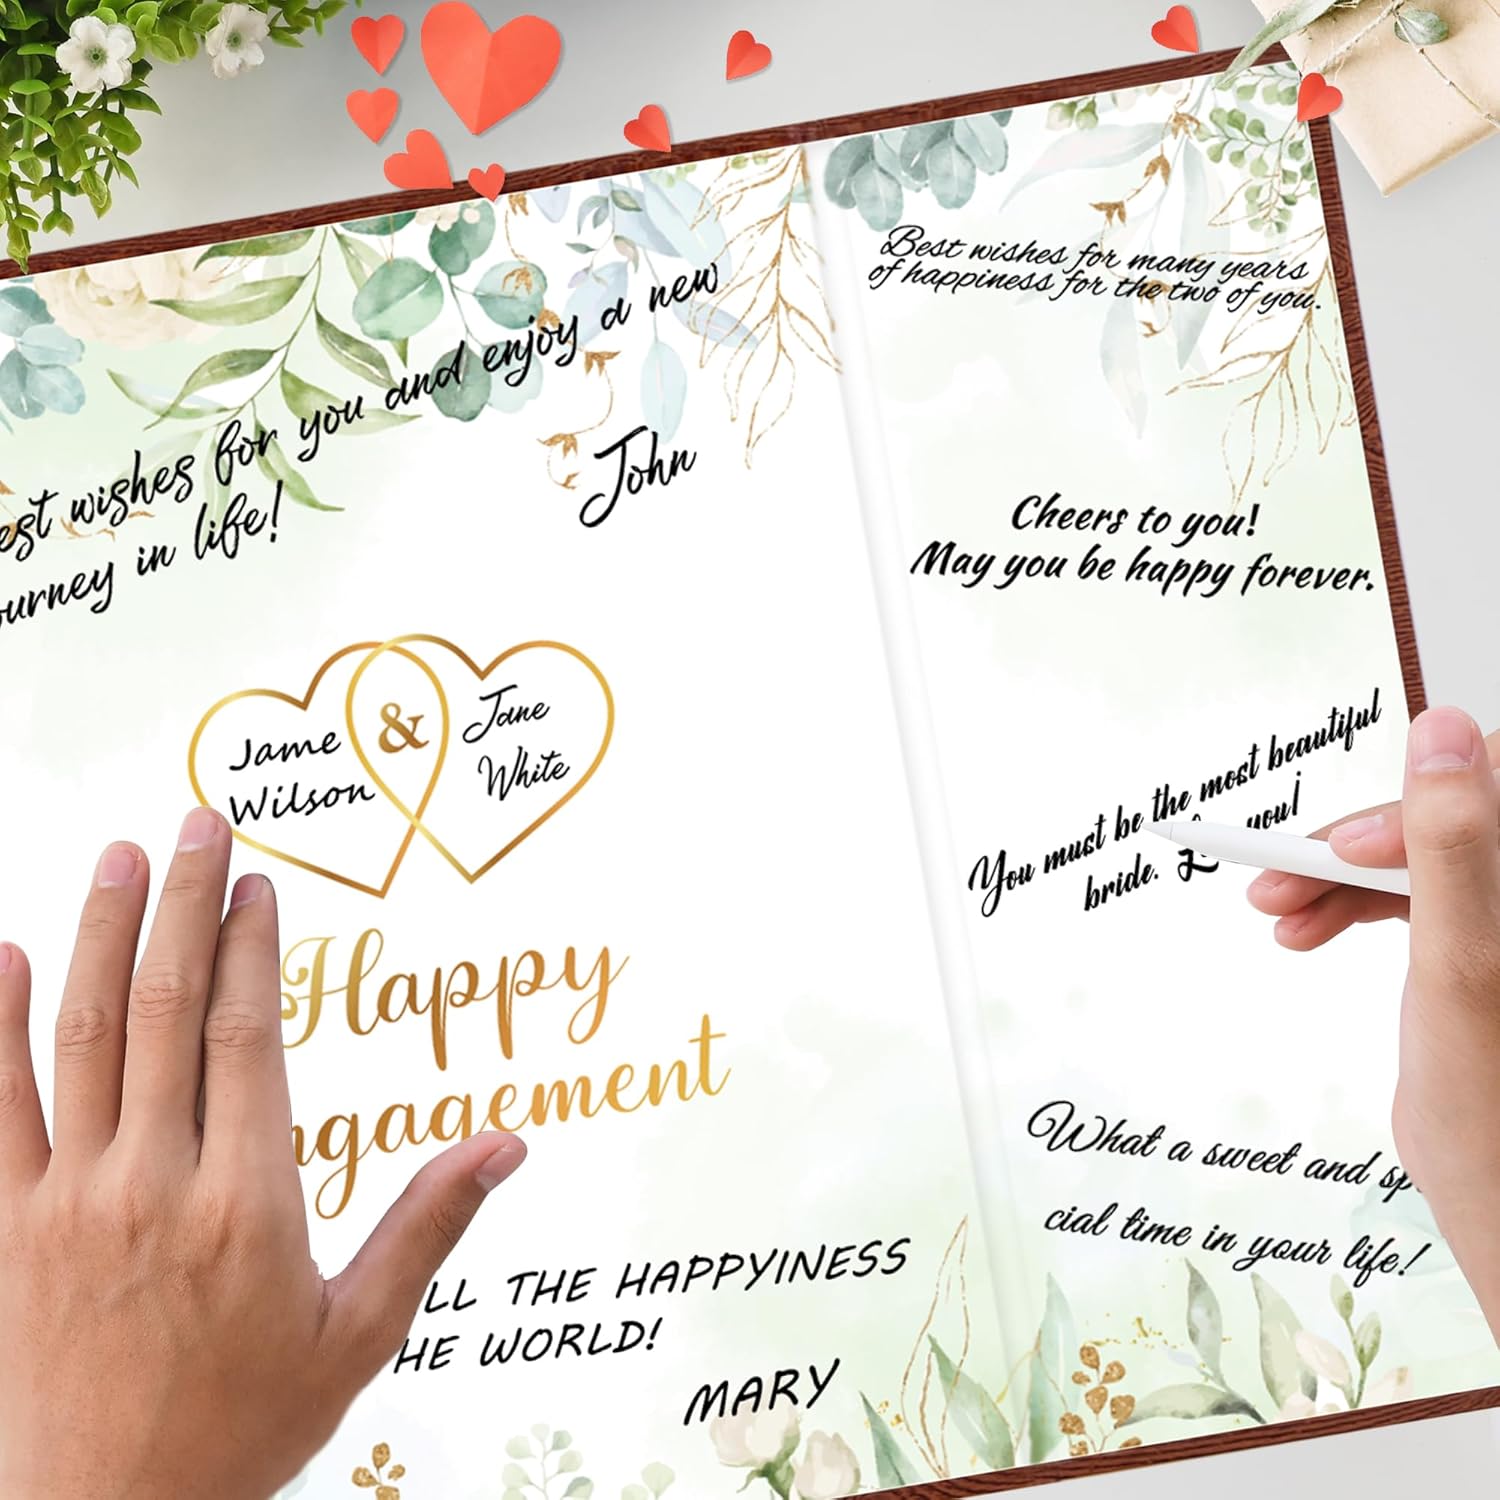 est wishes for you and enjoy a new
ourney in life!
John
Jame
Wilson
&
Jane
White
Happy
ngagement
LL THE HAPPYINESS
HE WORLD!
MARY
Best wishes for many years
of happiness for the two of you.
Cheers to you!
May you be happy forever.
You must be the most beautiful
bride. you!
What a sweet and sp
cial time in your life!